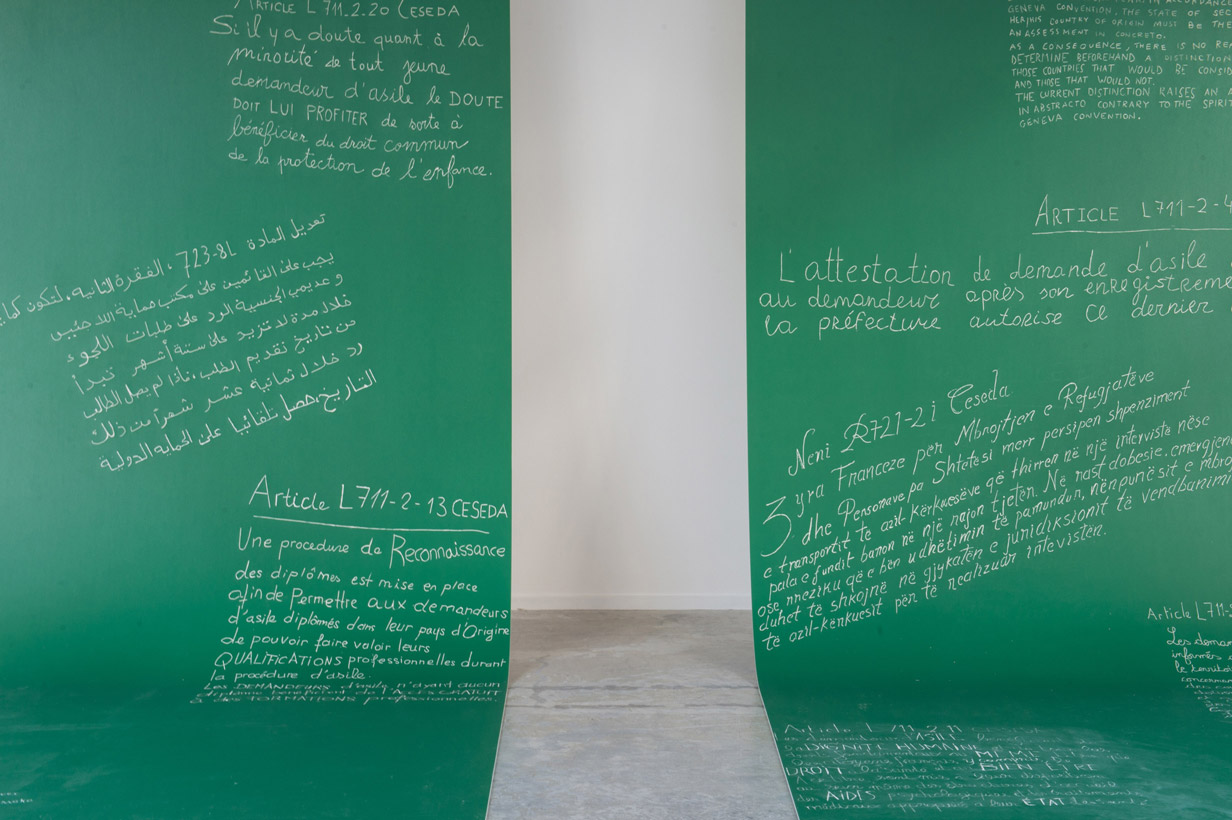 ARTICLE L 711_2_20 CESEDA
Si il y a doute quant à la
minorité de tout jeune
demandeur d'asile le DOUTE
DOIT LUI PROFITER de sorte à
bénéficier du droit commun
de la protection de l'enfance.
تعديل المادة 723-8L ، الفقرة الثانية، لتكون كما
يجب على القائمين على مكتب حماية اللاجئين
و عديمي الجنسية الرد على طلبات اللجوء
خلال مدة لا تزيد على ستة أشهر تبدأ
من تاريخ تقديم الطلب، فإذا لم يصل الطالب
رد خلال ثمانية عشر شهراً من ذلك
التاريخ، حصل تلقائيا على الحماية الدولية
Article L711-2-13 CESEDA
Une procédure de Reconnaissance
des diplômes est mise en place
afin de Permettre aux demandeurs
d'asile diplômés dans leur pays d'Origine
de pouvoir faire valoir leurs
QUALIFICATIONS professionnelles durant
la procédure d'asile.
Les DEMANDEURS d'asile n'ayant aucun
diplôme bénéficient de l'ACCES GRATUIT
à des FORMATIONS professionnelles.
GENEVA CONVENTION, THE STATE OF
HER/HIS COUNTRY OF ORIGIN MUST BE THE
AN ASSESSMENT IN CONCRETO.
AS A CONSEQUENCE, THERE IS NO
DETERMINE BEFOREHAND A DISTINCTION
THOSE COUNTRIES THAT WOULD BE
AND THOSE THAT WOULD NOT.
THE CURRENT DISTINCTION RAISES AN
IN ABSTRACTO CONTRARY TO THE
GENEVA CONVENTION.
ARTICLE L711-2-4
L'attestation de demande d'asile
au demandeur après son
la préfecture autorise ce dernier
Neni R721-2 i Ceseda
Zyra Franceze për Mbrojtjen e Refugjatëve
dhe Personave pa Shtetësi merr persipen shpenziment
e transportit te azil-kërkuesëve që thirren në një interviste nëse
pala e fundit banon në një rajon tjetën. Në rast dobesie, emergjen
ose rreziku që e bën udhëtimin të pamundun, nënpunësit e
duhet të shkojnë në gjykatën e juridiksionit të vendbanimi
të azil-kënkuesit për të realizuar intevistën.
Article L711-
Les
le
Article L 711-2-11
DIGNITÉ HUMAINE
DROIT BIEN ÊTRE
AIDES
ETAT